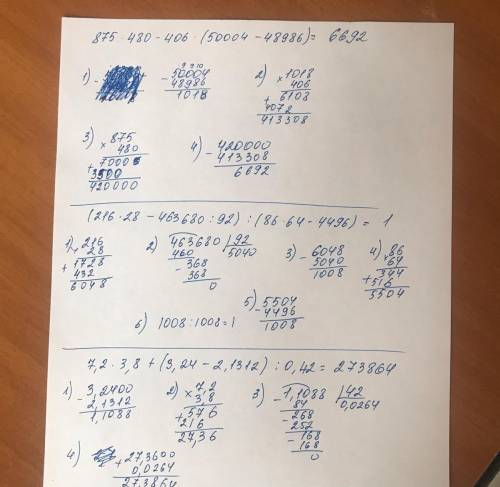 875 · 480 - 406 · (50004 - 48986) = 6692
1) - 50004
48986
1018
2) × 1018
406
+ 6108
4072
413308
3) × 875
480
+ 7000
3500
420000
4) - 420000
413308
6692
(216 · 28 - 463680 : 92) : (86 · 64 - 4496) = 1
1) × 216
28
+ 1728
432
6048
2) 463680 | 92
460 5040
- 368
368
0
3) - 6048
5040
1008
4) × 86
64
+ 344
516
5504
5) - 5504
4496
1008
6) 1008 : 1008 = 1
7,2 · 3,8 + (3,24 - 2,1312) : 0,42 = 273864
1) - 3,2400
2,1312
1,1088
2) × 7,2
3,8
+ 576
216
27,36
3) - 1,1088 | 42
84 0,0264
- 268
252
- 168
168
0
4) + 27,3600
0,0264
27,3864